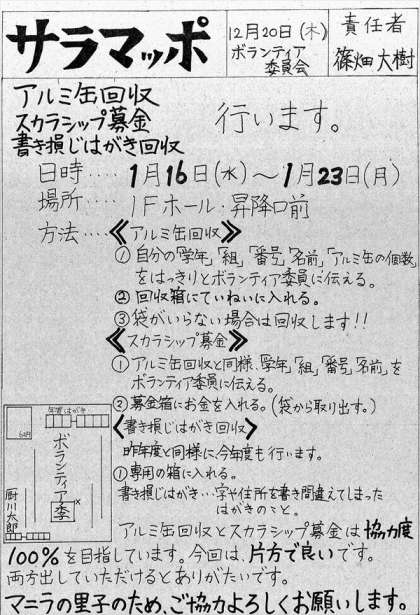 サラマッポ
12月20日(木)
ボランティア
委員会
責任者
篠畑 大樹
アルミ缶回収
スカラシップ募金
書き損じはがき回収
行います。
日時‥‥1月16日(水)～1月23日(月)
場所‥‥1Fホール・昇降口前
方法‥‥《アルミ缶回収》
①自分の「学年」「組」「番号」「名前」「アルミ缶の個数」
をはっきりとボランティア委員に伝える。
②回収箱にていねいに入れる。
③袋がいらない場合は回収します!!
《スカラシップ募金》
①アルミ缶回収と同様、「学年」「組」「番号」「名前」を
ボランティア委員に伝える。
②募金箱にお金を入れる。(袋から取り出す。)
《書き損じはがき回収》
昨年度と同様に、今年度も行います。
①専用の箱に入れる。
書き損じはがき…字や住所を書き間違えてしまった
はがきのこと。
ボランティア委
厨川太郎
アルミ缶回収とスカラシップ募金は協力度
100%を目指しています。今回は、片方で良いです。
両方出していただけるとありがたいです。
マニラの里子のため、ご協力よろしくお願いします。